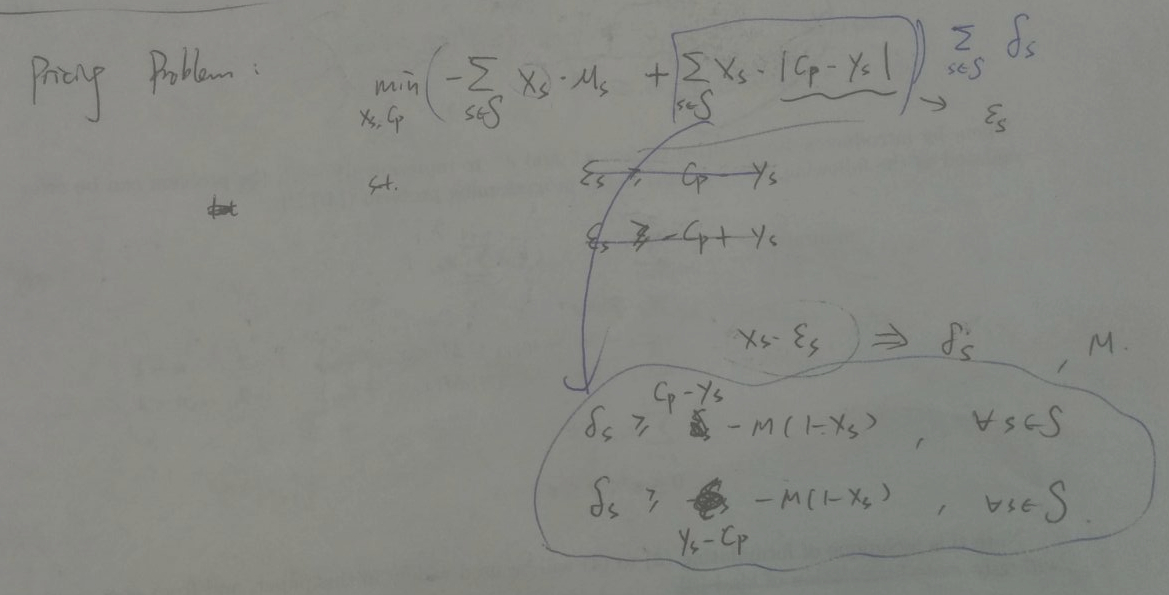 Pricing Problem : min ( -∑ xs · μs + ∑ xs · |Cp - ys| ) ∑ δs
xs, Cp s∈S s∈S s∈S → εs
st. εs ≥ Cp - ys
εs ≥ -Cp + ys
xs · εs ⇒ δs , M.
δs ≥ Cp - ys - M(1-xs) , ∀s∈S
δs ≥ ys - Cp - M(1-xs) , ∀s∈S